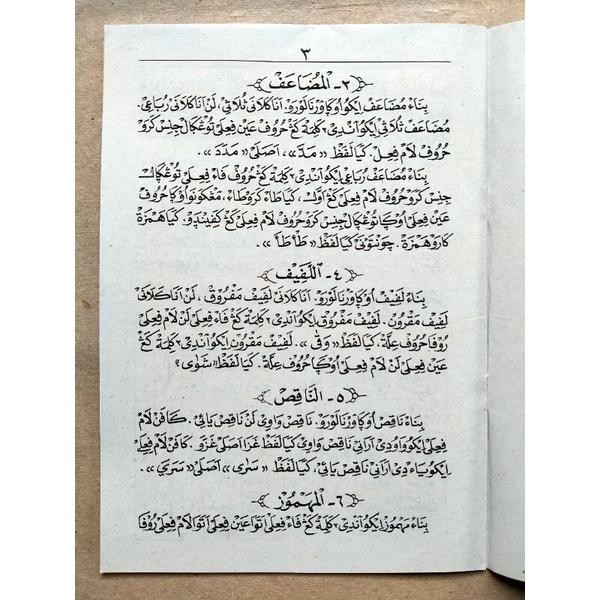 ٣
٣- اَلْمُضَاعَفْ
بِنَاءْ مُضَاعَفْ اِيْكُوْ اُوْڮَا وَرْنَا لَوْرَوْ. اَنَا كَلَانَيْ ثُلَاثِيْ، لَنْ اَنَا كَلَانَيْ رُبَاعِيْ.
مُضَاعَفْ ثُلَاثِيْ اِيْكُوْ اَنْدَيْ٢ كَلِمَةْ كَڠْ حُرُوْفْ عَيْنْ فِعِلَيْ تُوْڠْڮَالْ جِنِسْ كَرَوْ
حُرُوْفْ لَامْ فِعِلْ. كَيَا لَفَظْ «مَدَّ»، اَصَلَيْ «مَدَدَ».
بِنَاءْ مُضَاعَفْ رُبَاعِيْ اِيْكُوْ اَنْدَيْ٢ كَلِمَةْ كَڠْ حُرُوْفْ فَاءْ فِعِلَيْ تُوْڠْڮَالْ
جِنِسْ كَرَوْ حُرُوْفْ لَامْ فِعِلَيْ كَڠْ اَوَّلْ، كَيَا طَاءْ كَرَوْ طَاءْ، مَڠْكَوْنَوْ اُوْڮَا حُرُوْفْ
عَيْنْ فِعِلَيْ اُوْڮَا تُوْڠْڮَالْ جِنِسْ كَرَوْ حُرُوْفْ لَامْ فِعِلَيْ كَڠْ كَڤِيْنْدَوْ. كَيَا هَمْزَةْ
كَارَوْ هَمْزَةْ. چَوْنْتَوْنَيْ كَيَا لَفَظْ «طَأْطَأَ».
٤- اَللَّفِيْفْ
بِنَاءْ لَفِيْفْ اُوْڮَا وَرْنَا لَوْرَوْ. اَنَا كَلَانَيْ لَفِيْفْ مَفْرُوْقْ، لَنْ اَنَا كَلَانَيْ
لَفِيْفْ مَقْرُوْنْ. لَفِيْفْ مَفْرُوْقْ اِيْكُوْ اَنْدَيْ٢ كَلِمَةْ كَڠْ فَاءْ فِعِلَيْ لَنْ لَامْ فِعِلَيْ
رُوْڤَا حُرُوْفْ عِلَّةْ. كَيَا لَفَظْ «وَقَى». لَفِيْفْ مَقْرُوْنْ اِيْكُوْ اَنْدَيْ٢ كَلِمَةْ كَڠْ
عَيْنْ فِعِلَيْ لَنْ لَامْ فِعِلَيْ اُوْڮَا حُرُوْفْ عِلَّةْ. كَيَا لَفَظْ «شَوَى»
٥- اَلنَّاقِصْ
بِنَاءْ نَاقِصْ اُوْڮَا وَرْنَا لَوْرَوْ. نَاقِصْ وَاوِيْ لَنْ نَاقِصْ يَائِيْ. كَافَنْ لَامْ
فِعِلَيْ اِيْكُوْ وَاوُ دِيْ اَرَانِيْ نَاقِصْ وَاوِيْ كَيَا لَفَظْ غَزَا اَصَلَيْ غَزَوَ. كَافَنْ لَامْ فِعِلَيْ
اِيْكُوْ يَاءْ دِيْ اَرَانِيْ نَاقِصْ يَائِيْ. كَيَا لَفَظْ «سَرَى» اَصَلَيْ «سَرَيَ».
٦- اَلْمَهْمُوْزْ
بِنَاءْ مَهْمُوْزْ اِيْكُوْ اَنْدَيْ٢ كَلِمَةْ كَڠْ فَاءْ فِعِلَيْ اَتَوَا عَيْنْ فِعِلَيْ اَتَوَا لَامْ فِعِلَيْ رُوْڤَا